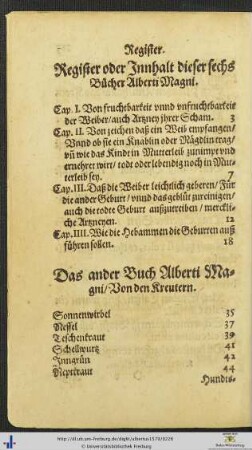 Register.
Register oder Innhalt dieser sechs
Bücher Alberti Magni.
Cap. I. Von fruchtbarkeit vnnd vnfruchtbarkeit
der Weiber/ auch Artzney jhrer Scham. 3
Cap. II. Von zeichen daß ein Weib empfangen/
Vnnd ob sie ein Knäblin oder Mägdlin trag/
vñ wie das Kindt in Mutterleib zunimpt vnd
ernehrer wirt/ todt oder lebendig noch in Mut-
terleib sey. 7
Cap. III. Daß die Weiber leichtlich geberen/ Für
die ander Geburt/ vnnd das geblüt zureinigen/
auch die todte Geburt außzutreiben/ merckli-
che Artzneyen. 12
Cap. IIII. Wie die Hebammen die Geburten auß
führen sollen. 18
Das ander Buch Alberti Ma-
gni/ Von den Kreutern.
Sonnenwirbel 35
Nessel 37
Teschenkraut 39
Schellwurtz 41
Inngrün 42
Neptkraut 44
Hundts-
http://dl.ub.uni-freiburg.de/diglit/albertus1578/0228
© Universitätsbibliothek Freiburg